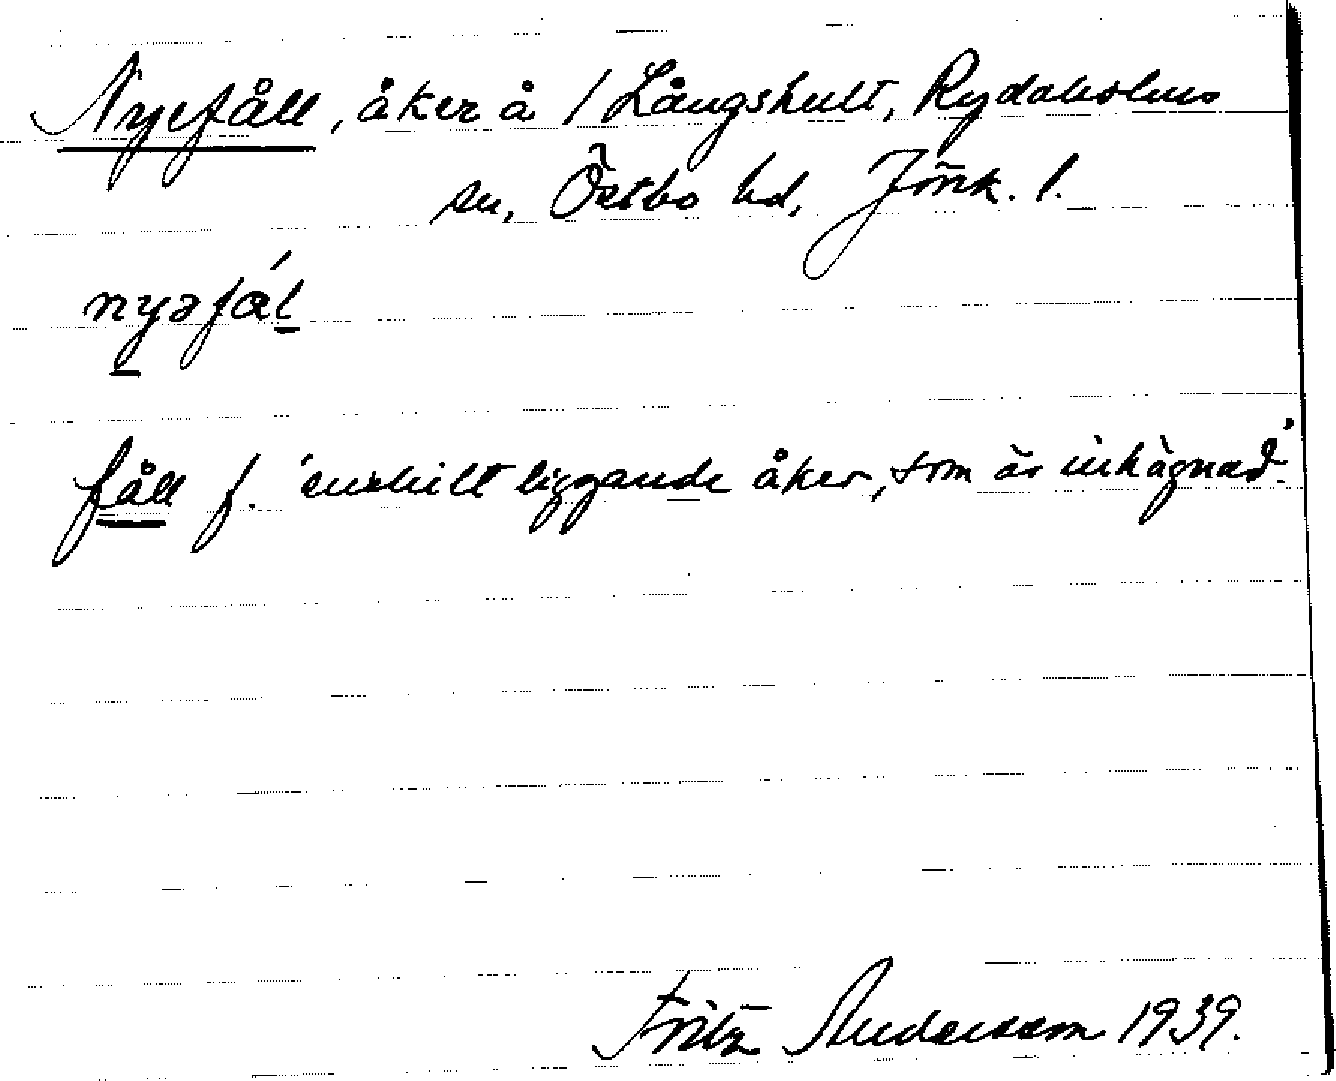 Nyefåll, åker å / Långshult, Rydaholms
sn, Östbo hd, Jönk. l.
nyəfål
fåll f. 'enskilt liggande åker, som är inhägnad'
Fritz Andersson 1939.